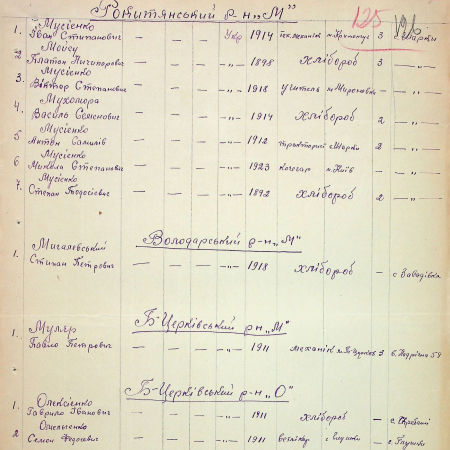 Рокитянський р-н „М"
125
1. Мусієнко
Іван Степанович — — Укр 1914 тех. механік 3 с. Шарки
2. Мойсу
Платон Пигипорович — — -„- 1898 хлібороб 3 — -„-
3. Мусієнко
Віктор Степанович — — -„- 1918 учитель м. Миронівка — -„-
4. Мухомора
Василь Семенович — — -„- 1914 хлібороб 2 — -„-
5. Мусієнко
Антон — — -„- 1912 тракторист с. Шарки 2 — -„-
6. Мусієнко
Микола Степанович — — -„- 1923 кочегар м. Київ — -„-
7. Мусієнко
Степан Теодосієвич — — -„- 1892 хлібороб — -„-
Володарський р-н „М"
1. Мигалевський
Степан Петрович — — — -„- 1918 хлібороб — с. Завадівка
Б-Церківський р-н „М"
1. Муляр
Павло Петрович — — — -„- 1911 механік 3
Б-Церківський р-н „О"
1. Олексієнко
Гаврило Іванович — — — -„- 1911 хлібороб —
2 Омельченко
Семен Федосієвич — — — -„- 1911 — с. Глушки